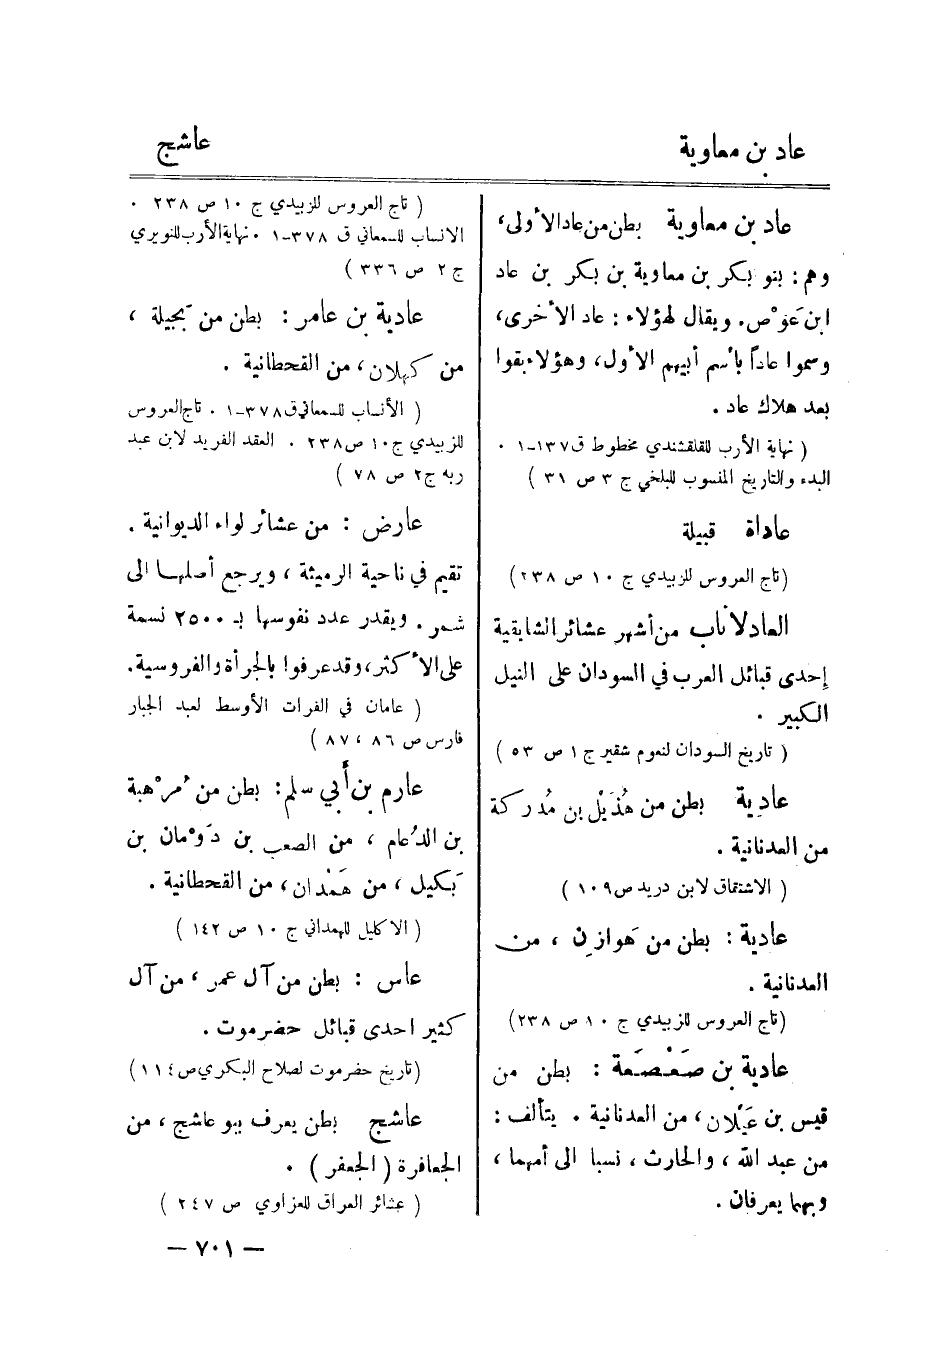 عاد بن معاوية
عاشج
عاد بن معاوية بطن من عاد الأولى،
وهم: بنو بكر بن معاوية بن بكر بن عاد
ابن عَوْص. ويقال لهؤلاء: عاد الأخرى،
وسموا عاداً بأسم أبيهم الأول، وهؤلاء بقوا
بعد هلاك عاد.
( نهاية الأرب للقلقشندي مخطوط ق ١٣٧-١ .
البدء والتاريخ المنسوب للبلخي ج ٣ ص ٣١ )
عاداة قبيلة
(تاج العروس للزبيدي ج ١٠ ص ٢٣٨)
العادلاناب من أشهر عشائر الشايقية
إحدى قبائل العرب في السودان على النيل
الكبير .
( تاريخ السودان لنعوم شقير ج ١ ص ٥٣ )
عادِية بطن من هُذَيْل بن مُدركة
من العدنانية .
( الاشتقاق لابن دريد ص ١٠٩ )
عادية : بطن من هَوازِن ، من
العدنانية .
(تاج العروس للزبيدي ج ١٠ ص ٢٣٨)
عادية بن صَعْصَعَة : بطن من
قيس بن عَيْلان، من العدنانية . يتألف :
من عبد الله ، والحارث ، نسبا الى أمهما ،
وبهما يعرفان .
( تاج العروس للزبيدي ج ١٠ ص ٢٣٨ .
الانساب للسمعاني ق ٣٧٨-١ . نهاية الأرب للنويري
ج ٢ ص ٣٣٦ )
عادية بن عامر : بطن من بَجيلة ،
من كهلان، من القحطانية .
( الأنساب للسمعاني ق ٣٧٨-١ . تاج العروس
للزبيدي ج ١٠ ص ٢٣٨ . العقد الفريد لابن عبد
ربه ج ٢ ص ٧٨ )
عارض : من عشائر لواء الديوانية .
تقيم في ناحية الرميثة ، ويرجع أصلها الى
شمر . ويقدر عدد نفوسها بـ ٢٥٠٠ نسمة
على الأكثر، وقد عرفوا بالجرأة والفروسية.
( عامان في الفرات الأوسط لعبد الجبار
فارس ص ٨٦ ، ٨٧ )
عارم بن أبي سلم: بطن من مُرْهبة
بن الدُعام ، من الصعب بن دَوْمان بن
بَكيل ، من هَمْدان، من القحطانية .
( الاكليل للهمداني ج ١٠ ص ١٤٢ )
عاس : بطن من آل عمر ، من آل
كثير احدى قبائل حضرموت .
(تاريخ حضرموت لصلاح البكري ص ١١٤)
عاشج بطن يعرف ببو عاشج ، من
الجعافرة ( الجعفر ) .
( عشائر العراق للعزاوي ص ٢٤٧ )
— ٧٠١ —